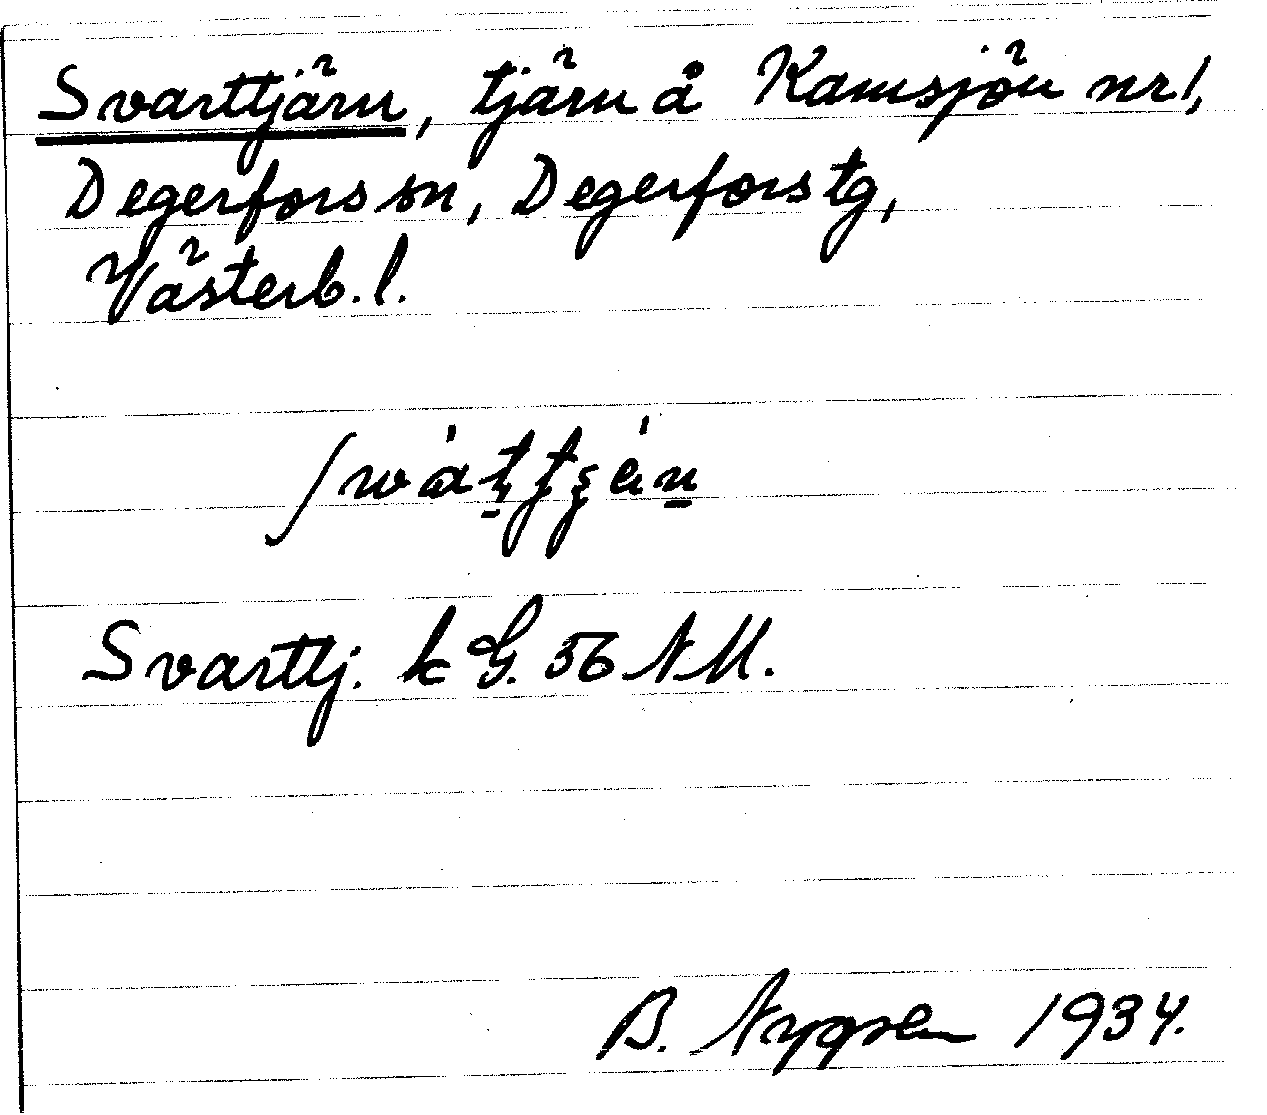 Svarttjärn, tjärn å Kamsjön nr 1,
Degerfors sn, Degerfors tg,
Västerb. l.
Svarttj. k G. 56 NM.
B. 1934.